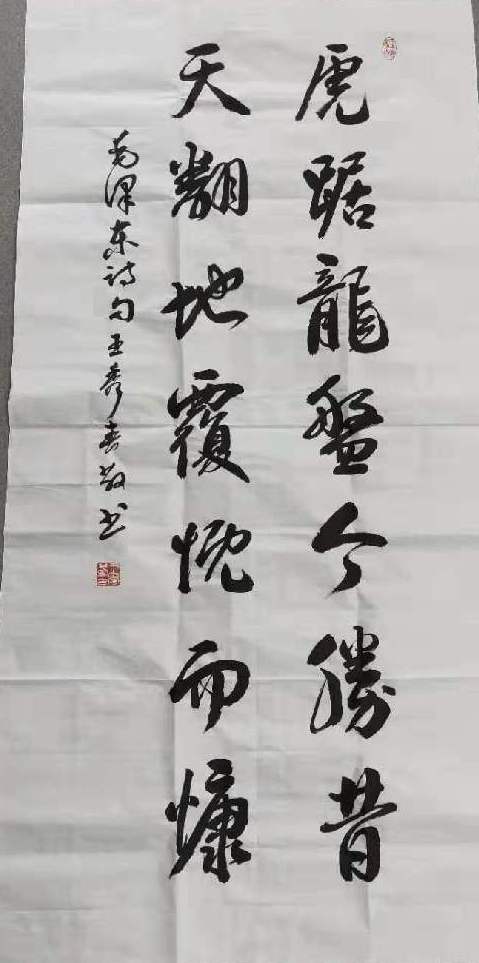 虎踞龍盤今勝昔
天翻地覆慨而慷
毛澤东诗句 王秀春敬书